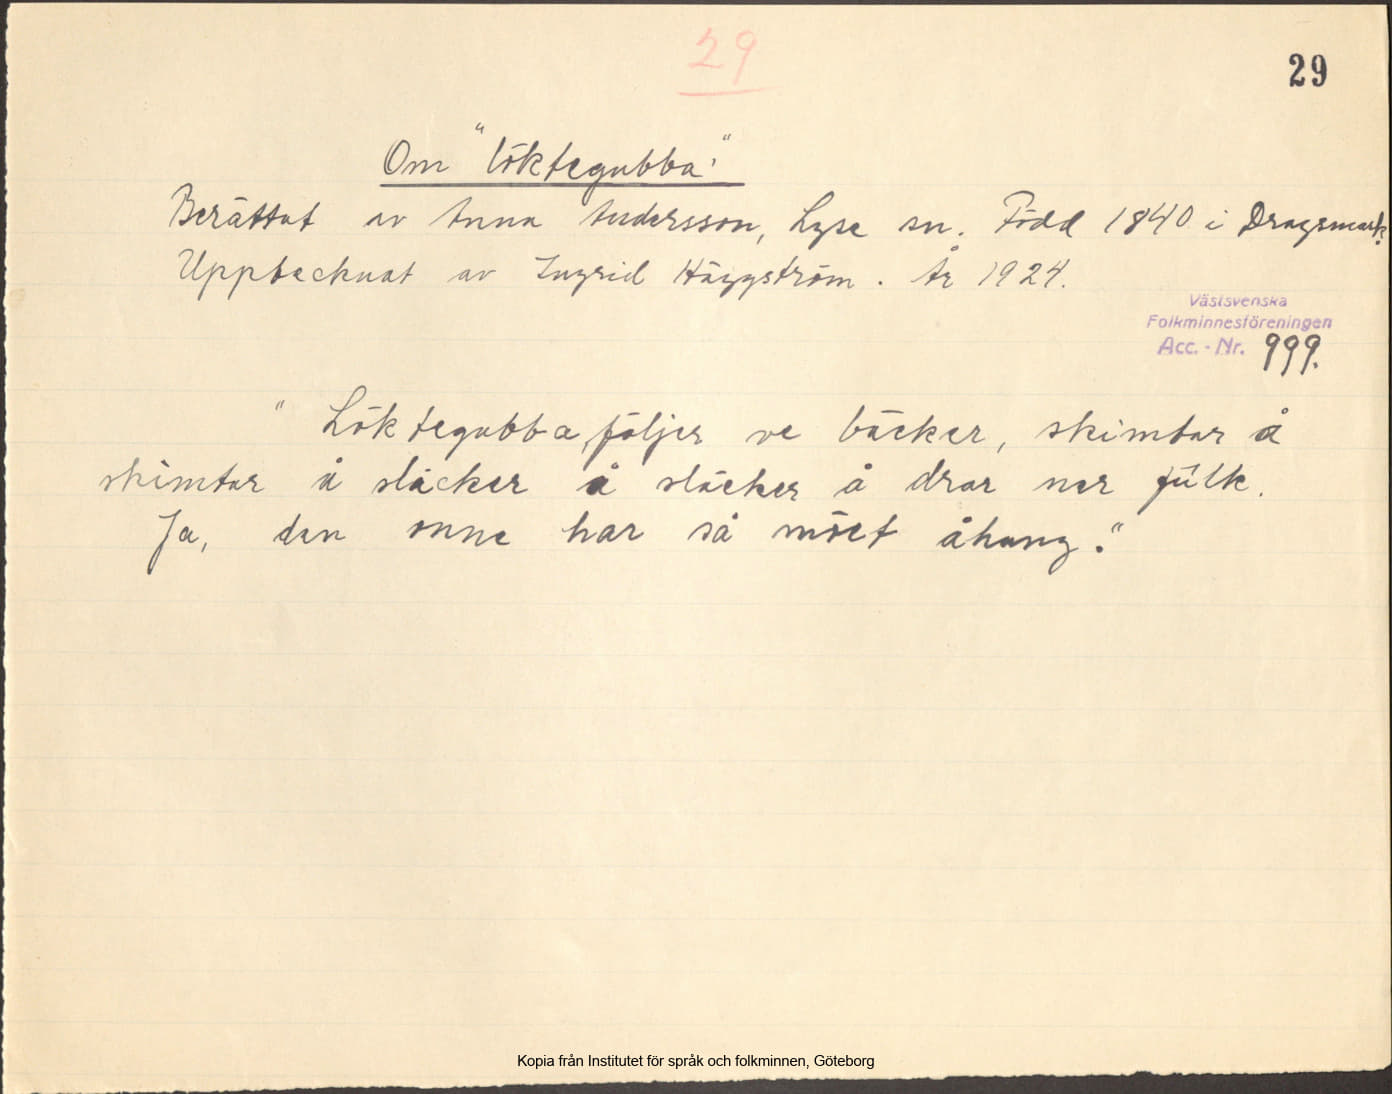 29
29
Om "löktegubba"
Berättat av Anna Andersson, Lyse sn. Född 1840 i Dragsmark.
Upptecknat av Ingrid Häggström. År 1924.
Västsvenska
Folkminnesföreningen
Acc. - Nr. 999.
" Löktegubba följer ve bäcker, skimtar å
skimtar å släcker å släcker å drar ner fûlk.
Ja, den onne har så möet åhang."
Kopia från Institutet för språk och folkminnen, Göteborg